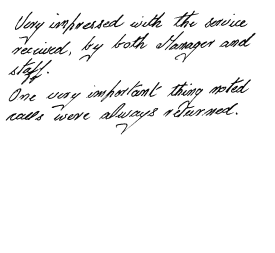 Very impressed with the service
recived, by both Manager and
staff.
One very important thing noted
calls were always returned.